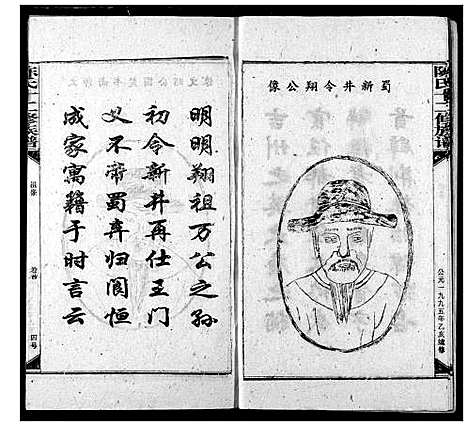 陈氏十二修族谱
蜀新井令翔公像
公元一九九五年乙亥续修
明明翔祖万公之孙
初令新井再仕王门
义不帝蜀弃归阆恒
成家寓籍于时言云
陈氏十二修族谱
遗像
卷首
四号